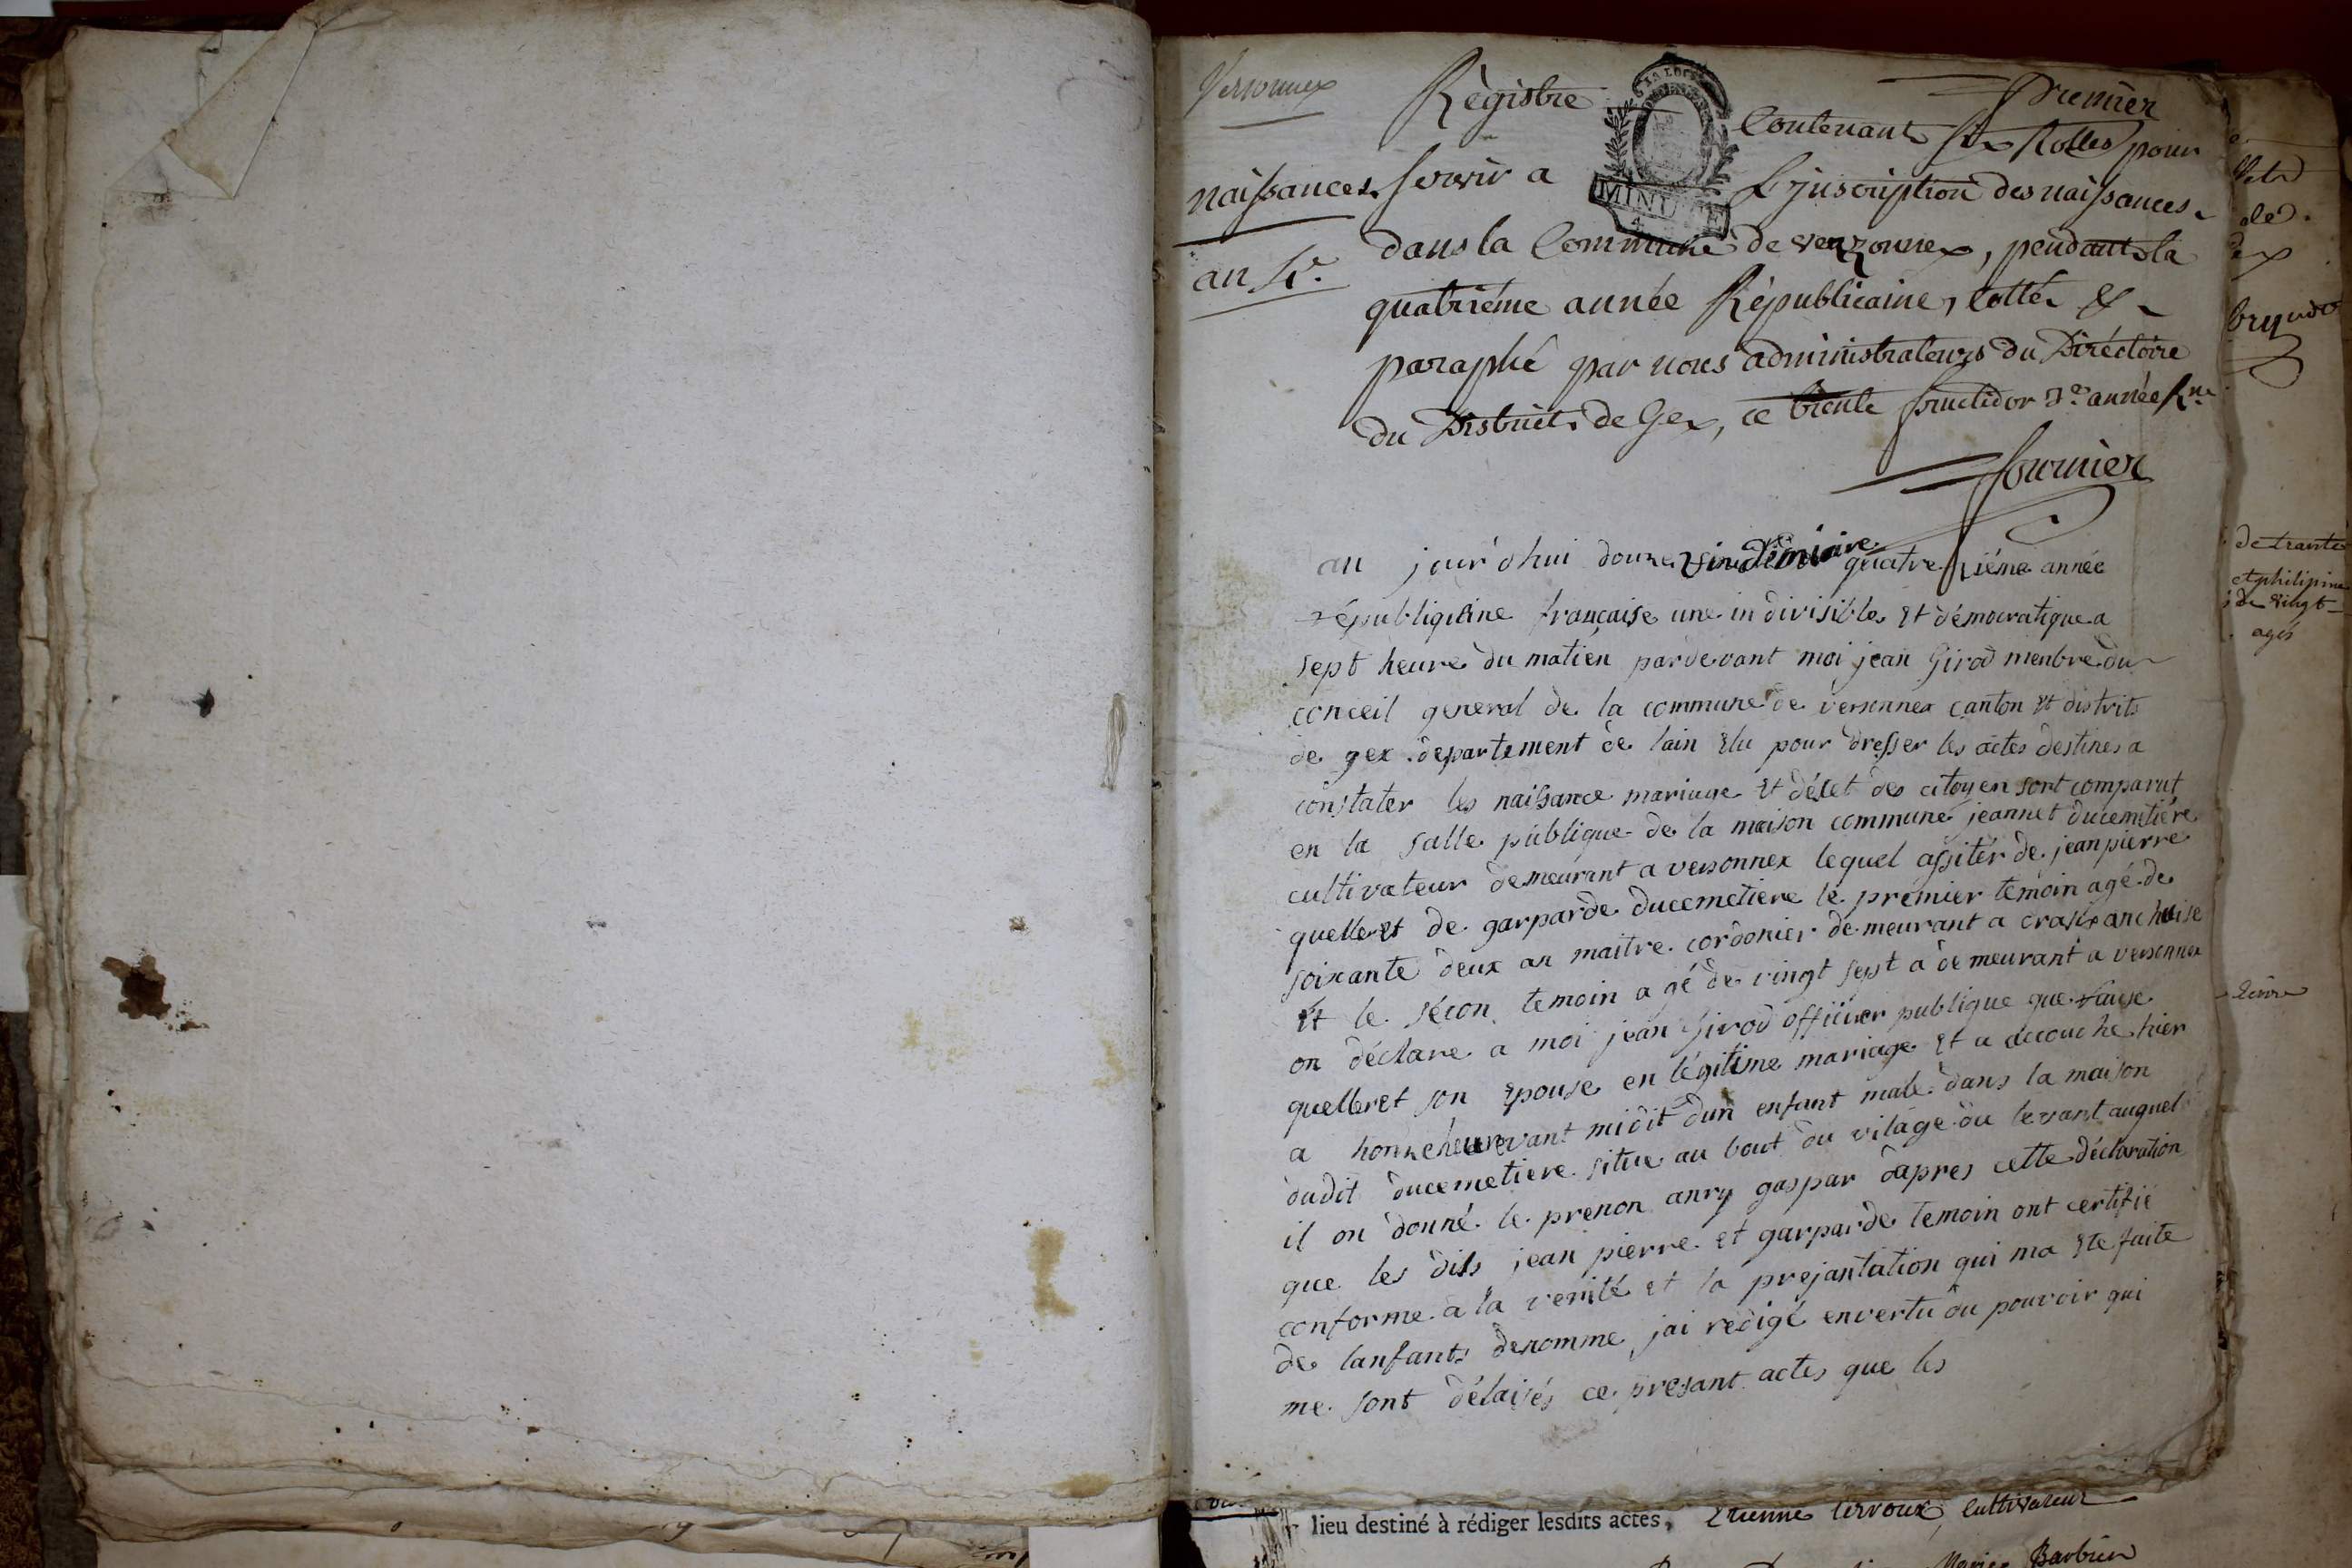 Versonnex
Premier
Régistre Contenant Six rolles pour
naissances. Servir a L'inscription des naissances
MINUTE
dans la Commune de verzonnex, pendant la
an 4e.
quatriéme année Républicaine, cotté &
paraphé par nous administrateurs du Diréctoire
du District de Gex, ce trente fructidor 3e année Rne
fournier
au jour'dhui douze vindémiaire quatre iéme année
républiqaine française une indivisible et démocratique a
sept heure du matien pardevant moi jean Girod menbre du
conceil general de la commune de versonnex canton et distrits
de gex departement de lain elu pour dresser les actes destines a
constater les naissance mariage et déset des citoyen sont comparut
en la salle publique de la maison commune jeannet ducemetiére
cultivateur demeurant a versonnex lequel assitér de jean pierre
quelleret de garparde ducemetiere le premier temoin agé de
soixante deux an maitre cordonier demeurant a
et le sécon temoin a gé de vingt sept a demeurant a versonnex
on déclare a moi jean Girod officier publique que
quelleret son epouse en légitime mariage et a accouche hier
a honze heure vant midit dun enfant male dans la maison
dudit ducemetiere situe au bout du vilage du levant auquel
il on donné le prenon anry gaspar dapres cette déclaration
que les dits jean pierre et garparde temoin ont certifié
conforme a la verité et la prejantation qui ma ete faite
de lanfants denomme jai redigé envertu du pouvoir qui
me sont délaisés ce presant actes que les
de trante
et philipine
de vingt
agés
lieu destiné à rédiger lesdits actes, Etienne cultivateur
Marie Barbier